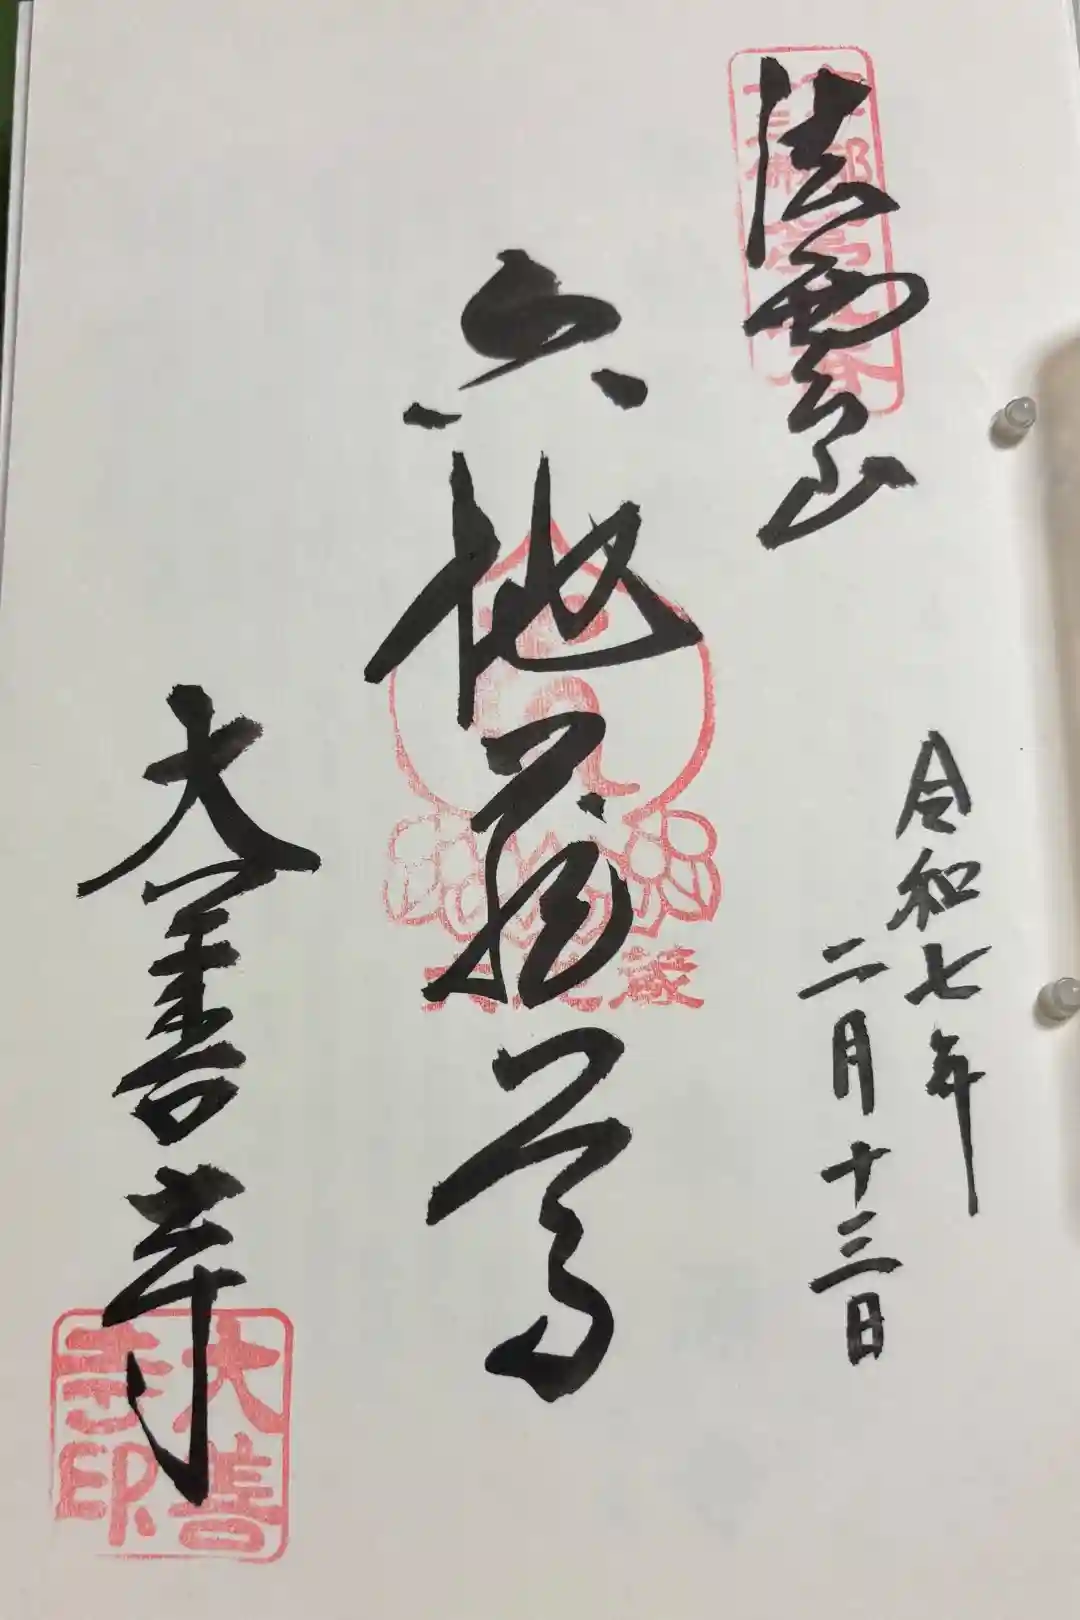 法雲山
令和七年
二月十三日
六地蔵尊
大善寺
大善
寺印